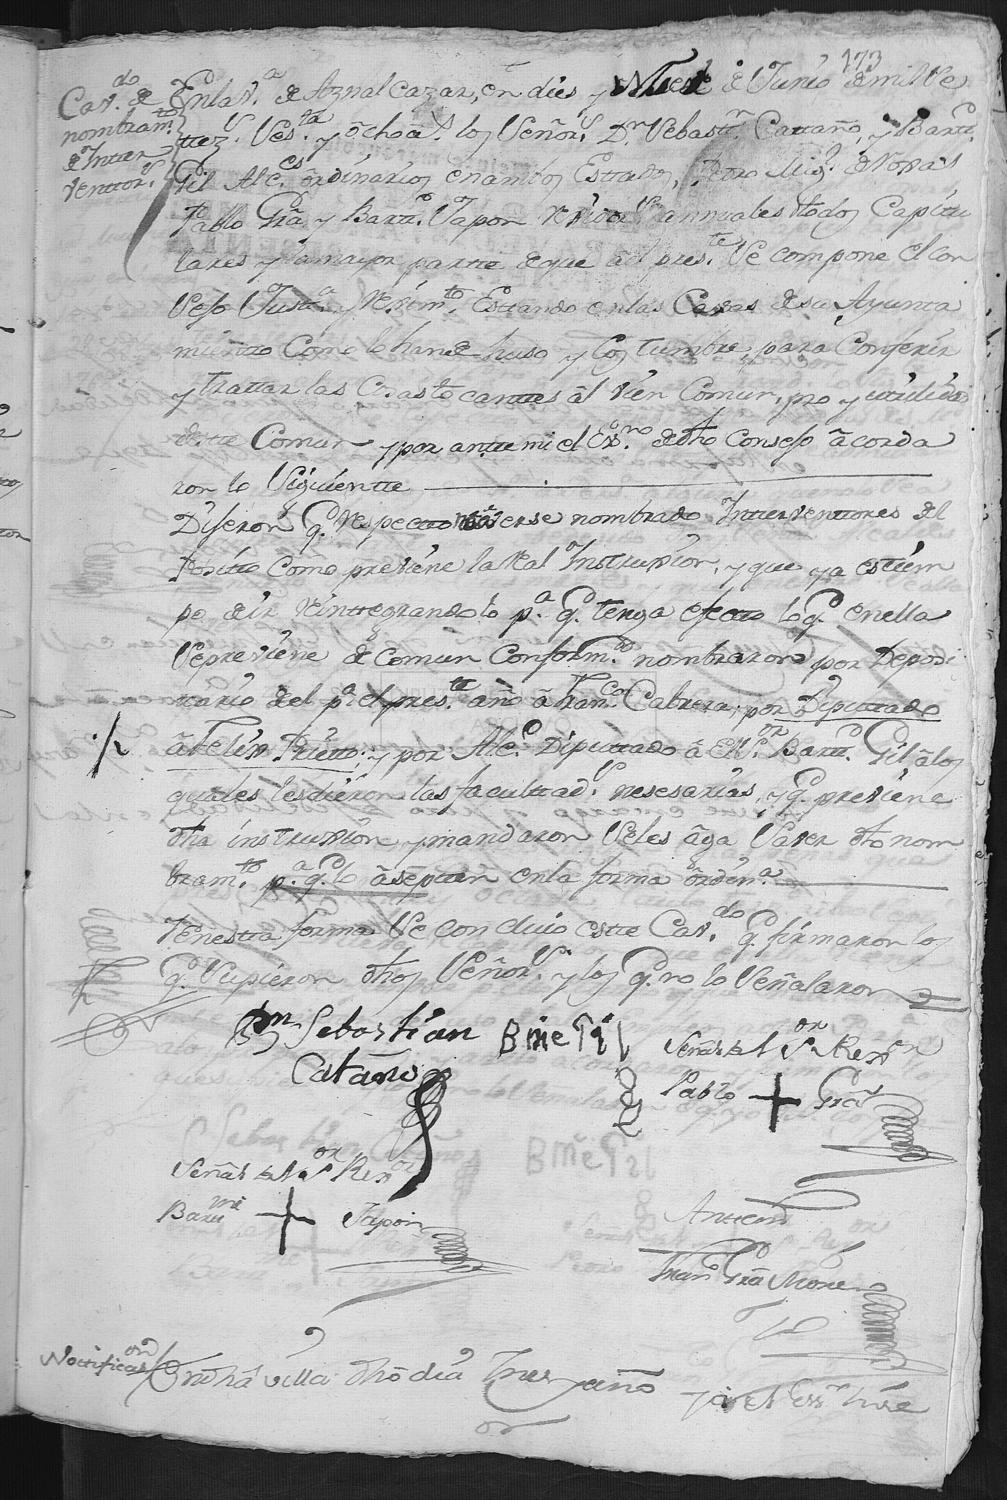 173
Cav.do de
nombram.to
de Inter
venttor.s
En la v.a de Aznalcazar, en dies y Nueve de Junio de mil Ve
ttez.s Ves.ta y ocho a.s los Señor.s D.n Sebast.n Cattaño y Bartt.e
Gil Alc.es ordinarios en ambos Estados, Pedro Mig.l de
Pablo Gra y Bartt.e Japon Rexidor.s annuales todos Capittu
lares y la mayor partte de que al pres.te Se compone el Con
Sejo Justt.a y Rexim.to Esttando en las Casas de su Ayunta
miento Como lo han de huso y Costumbre, para Conferir
y trattar las Cosas tocanttes al vien Comun, pro y utilidad
deste Comun y por antte mi el Es.no de dho Consejo acorda
ron lo Siguientte
Dijeron q.e respectto averse nombrado Intterventtores del
Positto Como previene la Real Instruzion, y que ya es tiem
po de ir reinttegrandolo p.a q.e tenga efectto lo q.e en ella
Se previene de comun Conform.d nombraron por Deposi
ttario del p.a el pres.te año a Fran.co Cabrera; por Diputtado
a Felix Prietto; y por Alc.e Diputtado a el S.or Bartt.e Gil a los
quales les dieron las facultad.s nesesarias, y q.e previene
dha instruzion y mandaron Seles aga Saver dho nom
bram.to p.a q.e lo aseptten en la forma ordin.a
Y en estta forma Se concluio este Cav.do q.e firmaron los
q.e Supieron dhos Señor.s y los q.e no lo Señalaron
D.n Sebastian
Cataño
B.me Gil
Señal del S.or Rex.or
Pablo + Gra
Señal del S.or Rex.or
Bartt.me + Japon
Antte mi
Fran.co Gra More
Nottificas.on
En dha villa dho dia mes y año yo el Ess.no hise